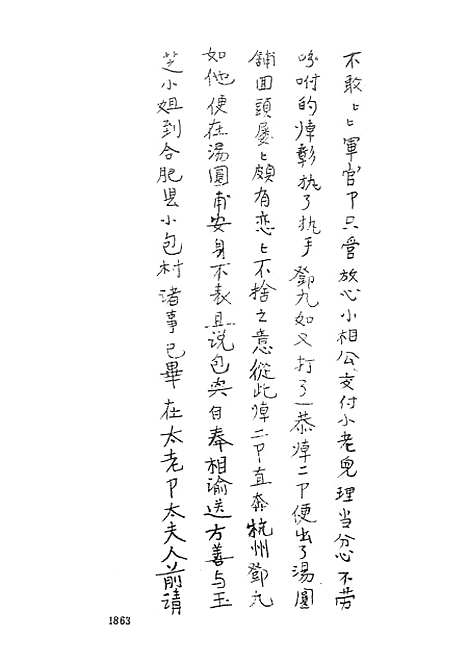 不敢〻〻軍官卩只管放心小相公交付小老兒理当分心不劳
吩咐的焯彰执了执手鄧九如又打了一恭焯二卩便出了湯圓
鋪回頭屡〻頗有恋〻不捨之意從此焯二卩直奔杭州鄧九
如他便在湯圓甫安身不表且说包兴自奉相谕送方善与玉
芝小姐到合肥县小包村诸事已畢在太老卩太夫人前请
1863